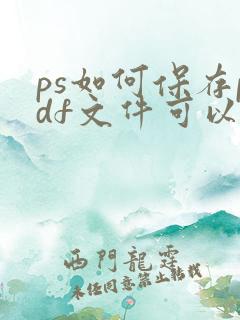 ps如何保存p
df文件可以
西門龍霆
未经同意禁止转载